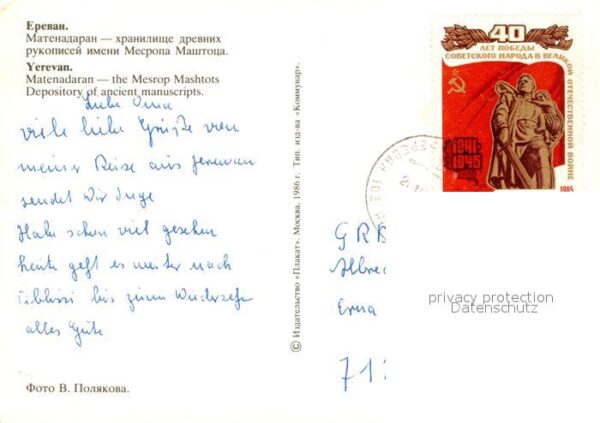 Ереван.
Матенадаран — хранилище древних
рукописей имени Месропа Маштоца.
Yerevan.
Matenadaran — the Mesrop Mashtots
Depository of ancient manuscripts.
Liebe Oma
viele liebe Grüße von
meiner Reise aus Jerewan
sendet Dir Inge
Habe schon viel gesehen
heute geht es weiter nach
Tiblissi bis zum Wiedersehn
alles Gute
Фото В. Полякова.
© Издательство «Плакат». Москва, 1986 г. Тип. изд-ва «Коммунар».
40
ЛЕТ ПОБЕДЫ
СОВЕТСКОГО НАРОДА В ВЕЛИКОЙ ОТЕЧЕСТВЕННОЙ ВОЙНЕ
1941
1945
1985
Erna
71
privacy protection
Datenschutz